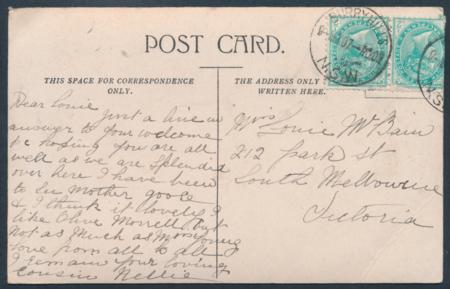 POST CARD.
THIS SPACE FOR CORRESPONDENCE
ONLY.
THE ADDRESS ONLY
WRITTEN HERE.
SURRY HILLS
07
N.S.W
Dear Louie
just a line in
answer to your welcome
pc hoping you are all
well as we are splendid
over here I have been
to see Mother goose
& I think it lovely I
like Olive Morrell but
not as Much as Miss
love from all to all
I remain your loving
Cousin Nellie
Miss Louie McBain
212 Park St
South Melbourne
Victoria